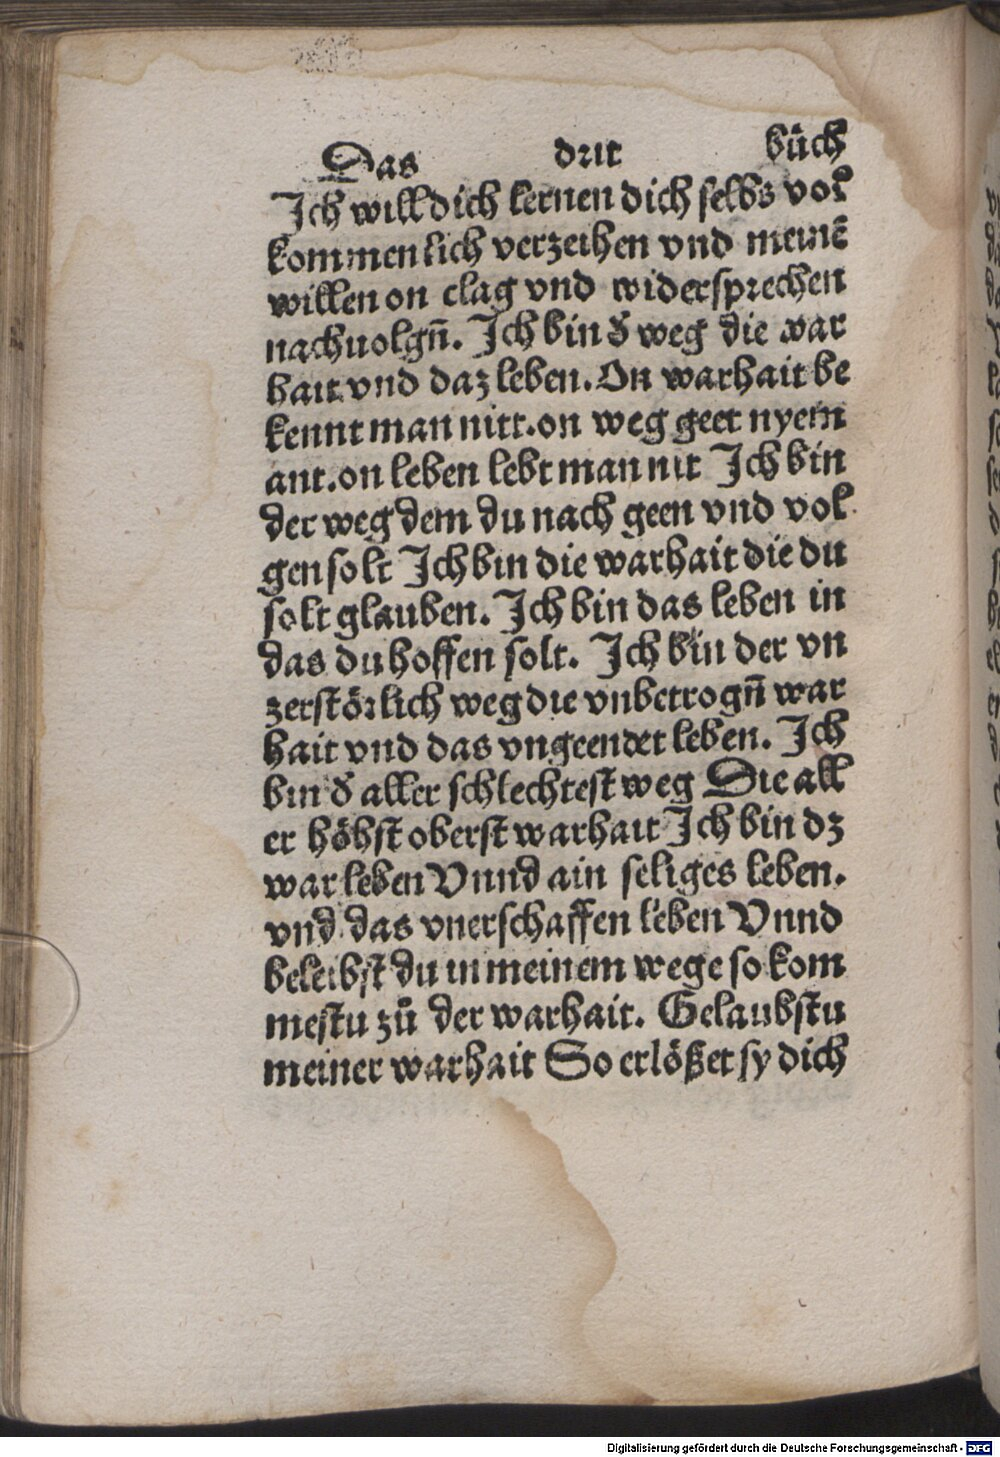 Das drit bůch
Ich will dich lernen dich selbs vol
kommenlich verzeihen vnd meinē
willen on clag vnd widersprechen
nachuolgn̄. Ich bin d̕ weg die war
hait vnd daz leben. On warhait be
kennt man nitt. on weg geet nyem
ant. on leben lebt man nit Ich bin
der weg dem du nach geen vnd vol
gen solt Ich bin die warhait die du
solt glauben. Ich bin das leben in
das du hoffen solt. Ich bin der vn
zerstörlich weg die vnbetrogn̄ war
hait vnd das vngeendet leben. Ich
bin d̕ aller schlechtest weg Die all
er höhst oberst warhait Ich bin dz
war leben Vnnd ain seliges leben.
vnd das vnerschaffen leben Vnnd
beleibst du in meinem wege so kom
mestu zů der warhait. Gelaubstu
meiner warhait So erlößet sy dich
Digitalisierung gefördert durch die Deutsche Forschungsgemeinschaft - DFG